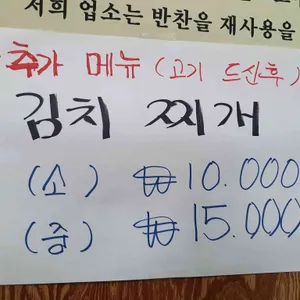 저희 업소는 반찬을 재사용을
추가 메뉴 (고기 드신후)
김치 찌개
(소) ₩10.000
(중) ₩15.000